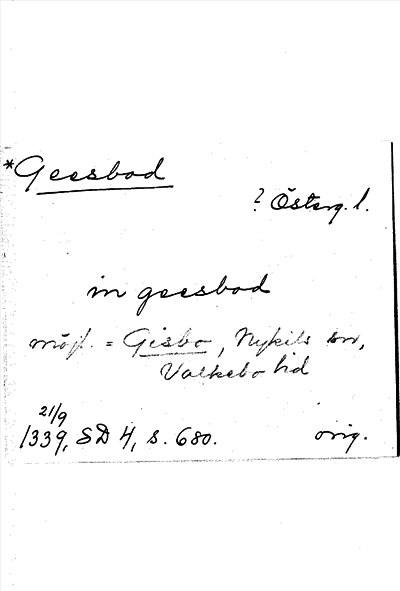 *Geesbod
? Österg. l.
in geesbod
möjl. = Gisbo, Nykils sn,
Valkebo hd
21/9
1339, SD 4, s. 680. orig.